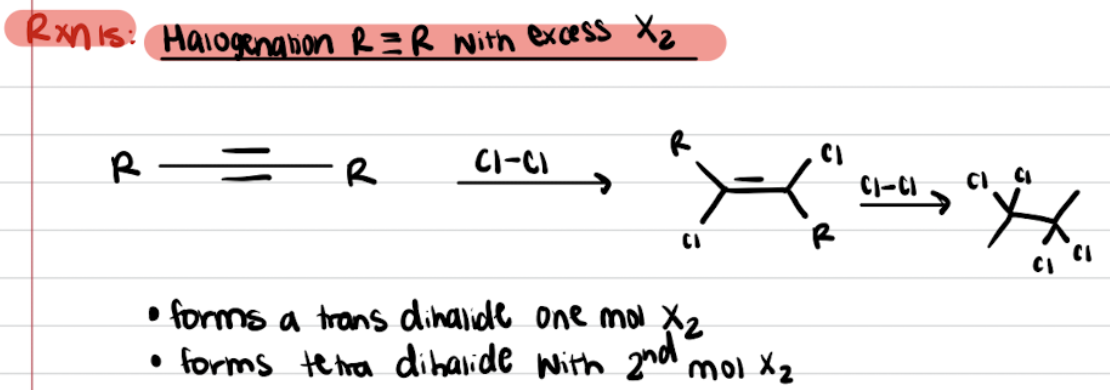 Rxn 15: Halogenation R≡R with excess X₂
R R Cl-Cl R Cl Cl R Cl-Cl Cl Cl Cl Cl
• forms a trans dihalide one mol X₂
• forms tetra dihalide with 2nd mol X₂